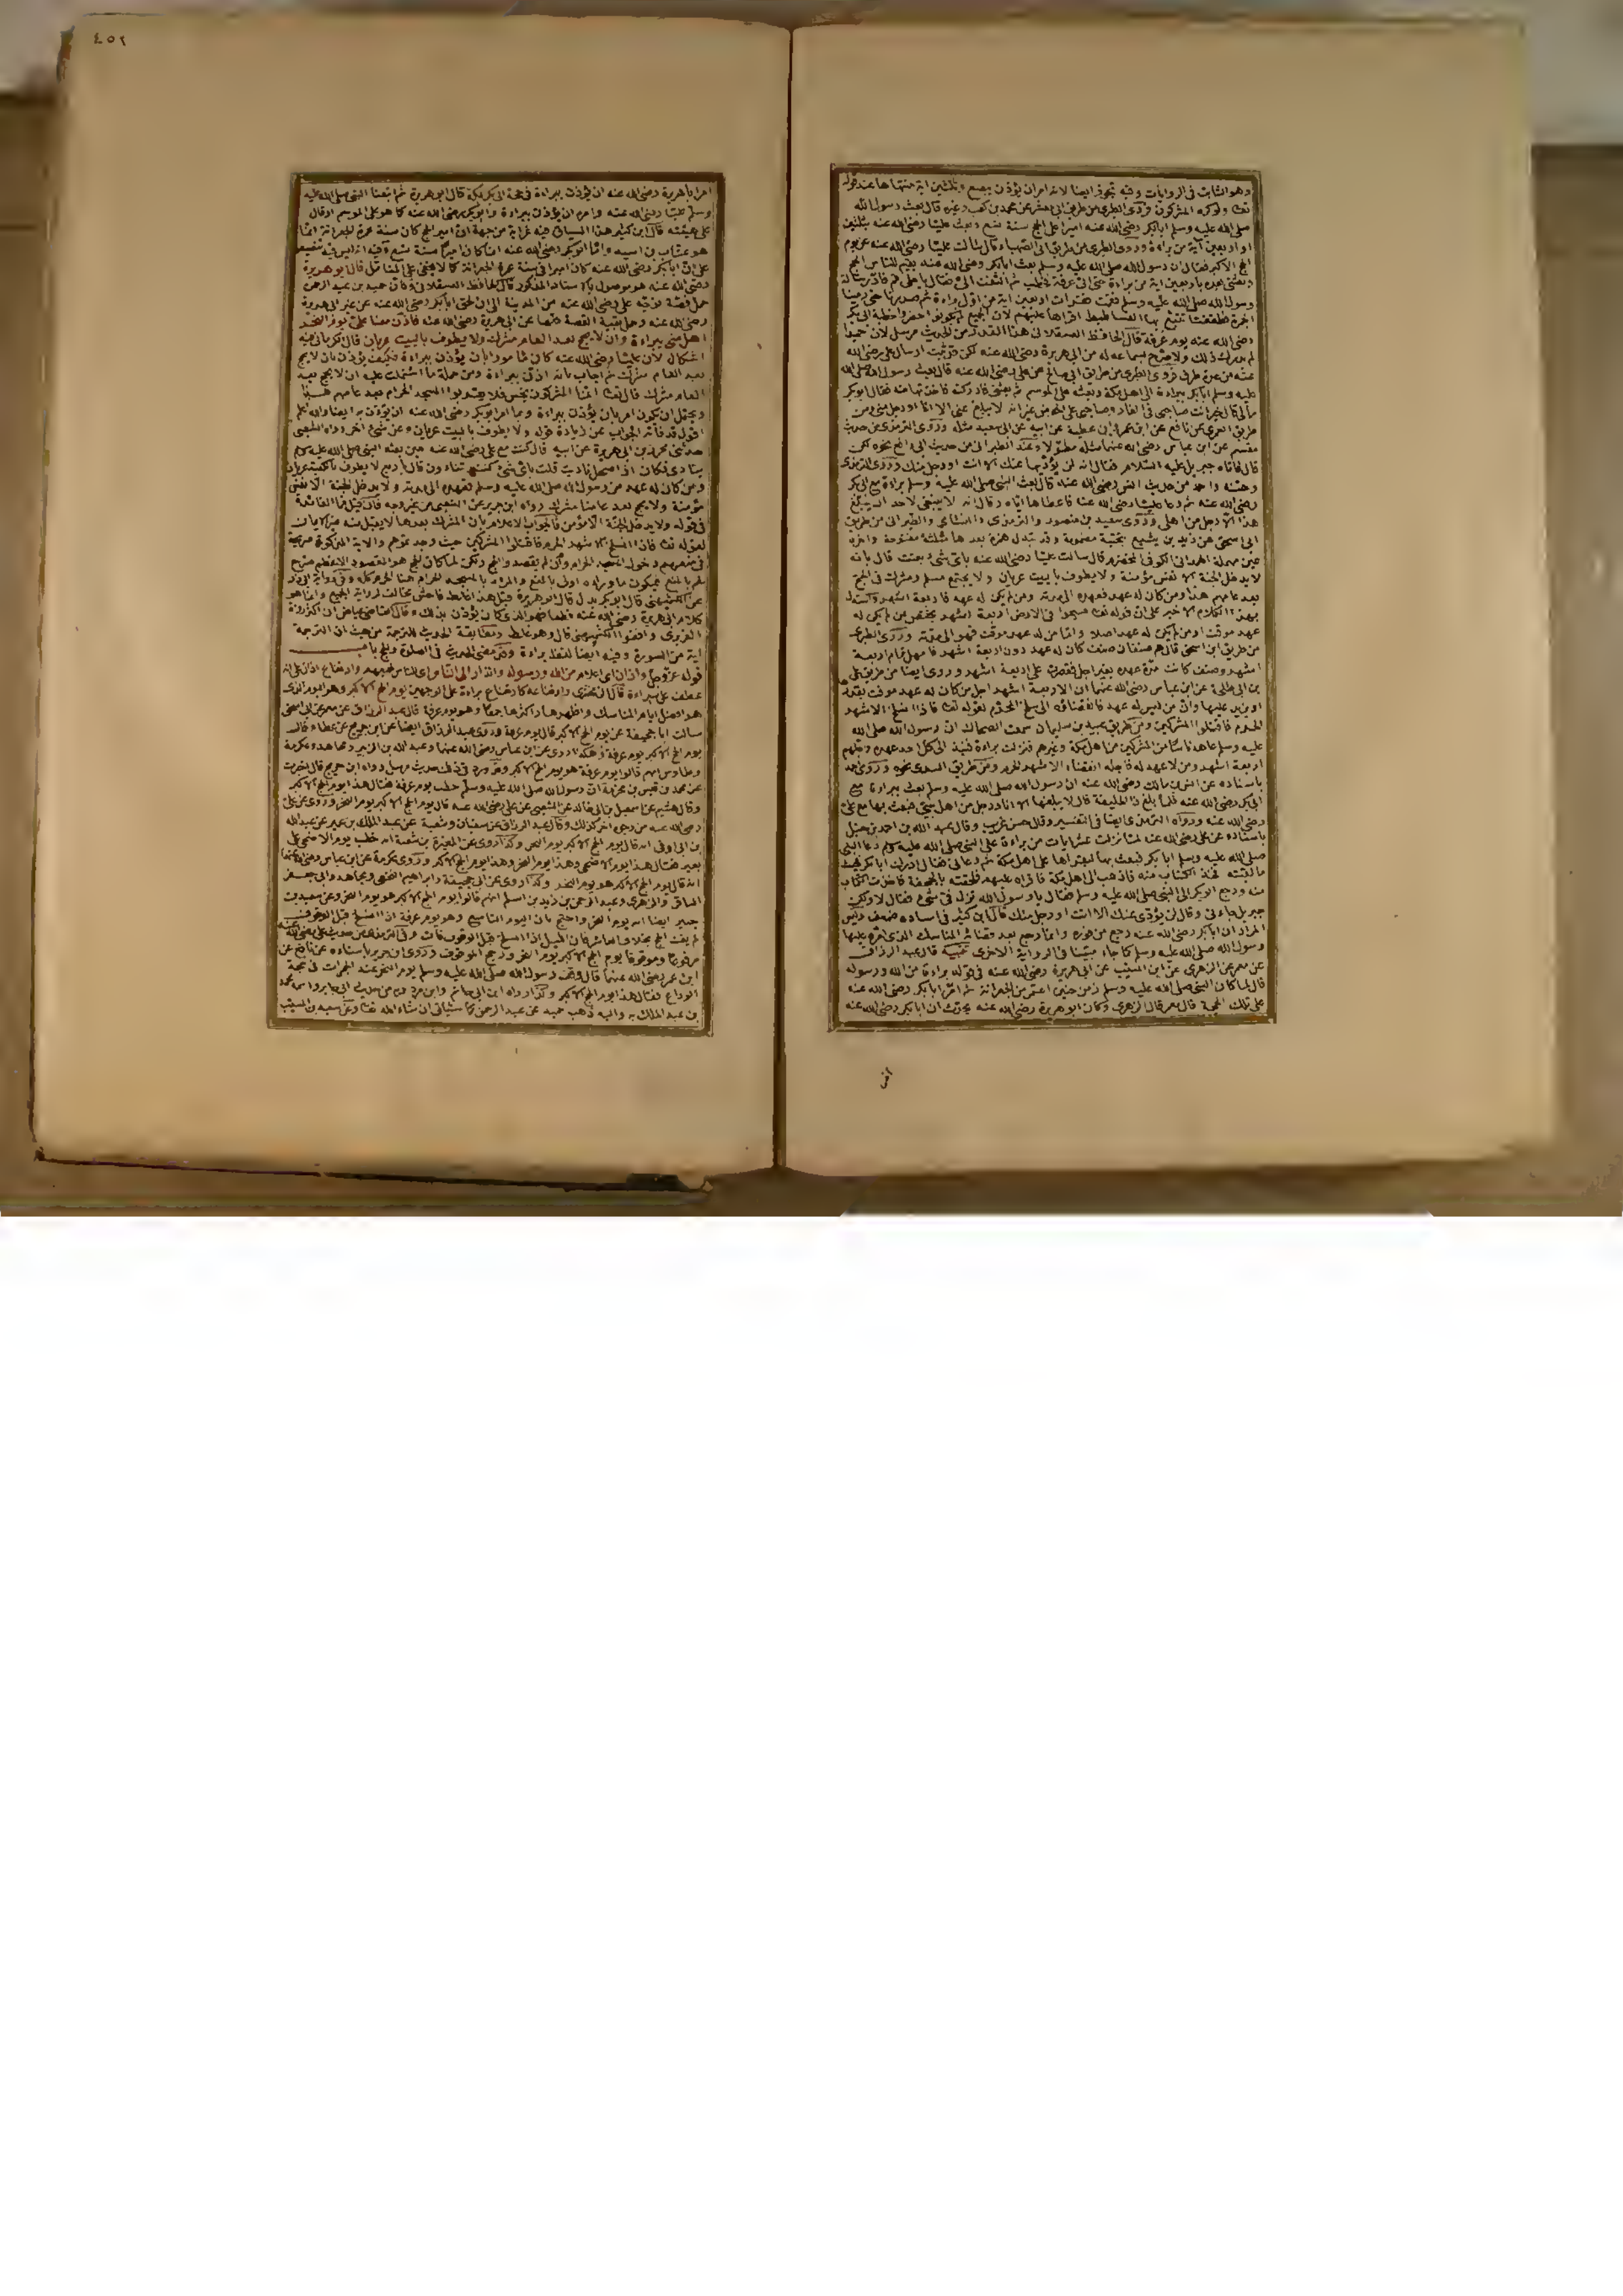 وهو الثابت في الروايات وفيه تجوز ايضا لانه امر ان يؤذن ببضع وثلثين اية منتهاها عند قوله
تعا ولو كره المشركون فروى الطبري من طريق ابي معشر عن محمد بن كعب وغيره قال بعث رسول الله
صلى الله عليه وسلم ابا بكر رضي الله عنه اميرا على الحج سنة تسع وبعث عليا رضي الله عنه بثلثين
او اربعين آية من براءة وروى الطبري من طريق ابي الصهباء قال سالت عليا رضي الله عنه عن يوم
الحج الاكبر فقال ان رسول الله صلى الله عليه وسلم بعث ابا بكر رضي الله عنه يقيم للناس الحج
وبعثني بعده باربعين اية من براءة حتى اتى عرفة فخطب ثم التفت الي فقال يا علي قم فاد رسالة
رسول الله صلى الله عليه وسلم فقمت فقرأت اربعين اية من اول براءة ثم صدرنا حتى رمينا
الجمرة فطفقت اتتبع بها الفساطيط اقراها عليهم لان الجميع لم يكونوا حضروا خطبة ابي بكر
رضي الله عنه يوم عرفة قال الحافظ العسقلاني هذا القدر من الحديث مرسل لان حميدا
لم يدرك ذلك ولا صرح بسماعه له من ابي هريرة رضي الله عنه لكن قد ثبت ارسال علي رضي الله
عنه من عدة طرق فروى الطبري من طريق ابي صالح عن علي رضي الله عنه قال بعث رسول الله صلى الله
عليه وسلم ابا بكر ببراءة الى اهل مكة وبعثه على الموسم ثم بعثني فادركته فاخذتها منه فقال ابو بكر
مالي قال خير انت صاحبي في الغار وصاحبي على الحوض غير انه لا يبلغ عني الا انا او رجل مني ومن
طريق العمري عن نافع عن ابن عمر ومن عطية عن ابيه عن ابي سعيد مثله وروى الترمذي من حديث
مقسم عن ابن عباس رضي الله عنهما مثله مطولا وعند الطبراني من حديث ابي رافع نحوه لكن
قال فاتاه جبريل عليه السلام فقال انه لن يؤديها عنك الا انت او رجل منك وروى الترمذي
وحسنه واحمد من حديث انس رضي الله عنه قال بعث النبي صلى الله عليه وسلم براءة مع ابي بكر
رضي الله عنه ثم دعا عليا رضي الله عنه فاعطاها اياه وقال انه لا ينبغي لاحد ان يبلغ
هذا الا رجل من اهلي وروى سعيد بن منصور والترمذي والنسائي والطبراني من طريق
ابي اسحق عن زيد بن يثيع بتحتية مضمومة وقد تبدل همزة بعدها مثلثة مفتوحة واخره
عين مهملة الهمداني الكوفي المخضرم قال سالت عليا رضي الله عنه باي شيء بعثت قال بانه
لا يدخل الجنة الا نفس مؤمنة ولا يطوف بالبيت عريان ولا يجتمع مسلم ومشرك في الحج
بعد عامهم هذا ومن كان له عهد فعهده الى مدته ومن لم يكن له عهد فاربعة اشهر واستدل
بهذا الكلام الاخير على ان قوله تعا فسيحوا في الارض اربعة اشهر يختص بمن لم يكن له
عهد موقت او من لم يكن له عهد اصلا واما من له عهد موقت فهو الى مدته وروى الطبري
من طريق ابن اسحق قال هم صنفان صنف كان له عهد دون اربعة اشهر فامهل تمام اربعة
اشهر وصنف كانت مدة عهده بغير اجل فقصرت على اربعة اشهر وروى ايضا من طريق علي
بن ابي طلحة عن ابن عباس رضي الله عنهما ان الاربعة اشهر اجل من كان له عهد موقت بقدرها
او يزيد عليها وان من ليس له عهد فانقضاؤه الى سلخ المحرم لقوله تعا فاذا انسلخ الاشهر
الحرم فاقتلوا المشركين ومن طريق عبيد بن سليمان سمعت الضحاك ان رسول الله صلى الله
عليه وسلم عاهد ناسا من المشركين من اهل مكة وغيرهم فنزلت براءة فنبذ الى كل احد عهده واجلهم
اربعة اشهر ومن لا عهد له فاجله انقضاء الاشهر الحرم ومن طريق السدي نحوه وروى احمد
باسناده عن انس بن مالك رضي الله عنه ان رسول الله صلى الله عليه وسلم بعث ببراءة مع
ابي بكر رضي الله عنه فلما بلغ ذا الحليفة قال لا يبلغها الا انا او رجل من اهل بيتي فبعث بها مع علي
رضي الله عنه ورواه الترمذي ايضا في التفسير وقال حسن غريب وقال عبد الله بن احمد بن حنبل
باسناده عن علي رضي الله عنه لما نزلت عشر ايات من براءة على النبي صلى الله عليه وسلم دعا النبي
صلى الله عليه وسلم ابا بكر فبعث بها ليقراها على اهل مكة ثم دعاني فقال ادرك ابا بكر فحيث
ما لقيته فخذ الكتاب منه فاذهب الى اهل مكة فاقراه عليهم فلحقته بالجحفة فاخذت الكتاب
منه ورجع ابو بكر الى النبي صلى الله عليه وسلم فقال يا رسول الله نزل في شيء فقال لا ولكن
جبريل جاءني وقال لن يؤدي عنك الا انت او رجل منك قال ابن كثير في اسناده ضعف وليس
المراد ان ابا بكر رضي الله عنه رجع من فوره وانما رجع بعد قضائه المناسك الذي امره عليها
رسول الله صلى الله عليه وسلم كما جاء مبينا في الرواية الاخرى تنبيه قال عبد الرزاق
عن معمر عن الزهري عن ابن المسيب عن ابي هريرة رضي الله عنه في قوله براءة من الله ورسوله
قال لما كان النبي صلى الله عليه وسلم زمن حنين اعتمر من الجعرانة ثم امر ابا بكر رضي الله عنه
على تلك الحجة قال معمر قال الزهري وكان ابو هريرة رضي الله عنه يحدث ان ابا بكر رضي الله عنه
٤٥٢
امر ابا هريرة رضي الله عنه ان يؤذن ببراءة في حجة ابي بكر بمكة قال ابو هريرة ثم اتبعنا النبي صلى الله عليه
وسلم عليا رضي الله عنه وامره ان يؤذن ببراءة وابو بكر رضي الله عنه كما هو على الموسم او قال
على هيئته قال ابن كثير هذا السياق فيه غرابة من جهة ان امير الحج كان سنة عمرة الجعرانة انما
هو عتاب بن اسيد واما ابو بكر رضي الله عنه انما كان اميرا سنة تسع وفيه انه ليس فيه تنصيص
على ان ابا بكر رضي الله عنه كان اميرا في سنة عمرة الجعرانة كما لا يخفى على المتأمل قال ابو هريرة
رضي الله عنه هو موصول بالاسناد المذكور قال الحافظ العسقلاني وكان حميد بن عبد الرحمن
حمل قصة توجه علي رضي الله عنه من المدينة الى ان لحق ابا بكر رضي الله عنه عن غير ابي هريرة
رضي الله عنه وحمل بقية القصة كلها عن ابي هريرة رضي الله عنه فاذن معنا علي يوم النحر
اهل منى ببراءة وان لا يحج بعد العام مشرك ولا يطوف بالبيت عريان قال الكرماني فيه
اشكال لان عليا رضي الله عنه كان مامورا بان يؤذن ببراءة فكيف يؤذن بان لا يحج
بعد العام مشرك ثم اجاب بانه اذن ببراءة ومن جملة ما اشتملت عليه ان لا يحج بعد
العام مشرك قال تعا انما المشركون نجس فلا يقربوا المسجد الحرام بعد عامهم هذا
ويحتمل ان يكون امر بان يؤذن ببراءة وبما امر ابو بكر رضي الله عنه ان يؤذن به ايضا والله اعلم
اقول قد فاته الجواب عن زيادة قوله ولا يطوف بالبيت عريان وعن شيء اخر رواه الشعبي
حدثني محرر بن ابي هريرة عن ابيه قال كنت مع علي رضي الله عنه حين بعثه النبي صلى الله عليه وسلم
ينادي فكان اذا صحل ناديت قلت باي شيء كنتم تنادون قال باربع لا يطوف بالكعبة عريان
ومن كان له عهد من رسول الله صلى الله عليه وسلم فعهده الى مدته ولا يدخل الجنة الا نفس
مؤمنة ولا يحج بعد عامنا مشرك رواه ابن جرير عن الشعبي من غير وجه فان قيل ما الفائدة
في قوله ولا يدخل الجنة الا مؤمن فالجواب الاعلام بان المشرك بعدها لا يقبل منه غير الايمان
لقوله تعا فاذا انسلخ الاشهر الحرم فاقتلوا المشركين حيث وجدتموهم والاية المذكورة صريحة
في منعهم دخول المسجد الحرام وان لم يقصدوا الحج ولكن لما كان الحج هو المقصود الاعظم صرح
لهم بالمنع فيكون ما وراءه اولى بالمنع والمراد بالمسجد الحرام هنا الحرم كله وفي رواية ابي ذر
عن الكشميهني قال ابو بكر بدل قال ابو هريرة قيل هذا غلط فاحش مخالف لرواية الجميع وانما هو
كلام ابي هريرة رضي الله عنه قطعا فهو الذي كان يؤذن بذلك وقال القاضي عياض ان اكثر رواة
الفربري وافقوا الكشميهني قال وهو غلط ومطابقة الحديث للترجمة من حيث ان الترجمة
اية من السورة وفيه ايضا لفظ براءة وقد مضى الحديث في الصلوة والحج باب
قوله عز وجل واذان اي اعلام من الله ورسوله واندار الى الناس اي للناس فجيهم وارتفاع اذان على انه
عطف على براءة قال الزمخشري وارتفاعه كارتفاع براءة على الوجهين يوم الحج الاكبر وهو اليوم الذي
هو افضل ايام المناسك واظهرها واكثرها جمعا وهو يوم عرفة قال عبد الرزاق عن معمر عن ابي اسحق
سالت ابا جحيفة عن يوم الحج الاكبر قال يوم عرفة وروى عبد الرزاق ايضا عن ابن جريج عن عطاء قال
يوم الحج الاكبر يوم عرفة وهكذا روى عن ابن عباس رضي الله عنهما وعبد الله بن الزبير ومجاهد وعكرمة
وطاوس انهم قالوا يوم عرفة هو يوم الحج الاكبر وقد ورد في ذلك حديث مرسل رواه ابن جريج قال اخبرت
عن محمد بن قيس بن مخرمة ان رسول الله صلى الله عليه وسلم خطب يوم عرفة فقال هذا يوم الحج الاكبر
وقال هشيم عن اسمعيل بن ابي خالد عن الشعبي عن علي رضي الله عنه قال يوم الحج الاكبر يوم النحر وروى عن علي
رضي الله عنه من وجوه اخر كذلك وقال عبد الرزاق عن سفيان وشعبة عن عبد الملك بن عمير عن عبد الله
بن ابي اوفى انه قال يوم الحج الاكبر يوم النحر وكذا روى عن المغيرة بن شعبة انه خطب يوم الاضحى على
بعير فقال هذا يوم الاضحى وهذا يوم النحر وهذا يوم الحج الاكبر وروى عكرمة عن ابن عباس رضي الله عنهما
انه قال يوم الحج الاكبر هو يوم النحر وكذا روى عن ابي جحيفة وابراهيم النخعي ومجاهد وابي جعفر
الباقر والزهري وعبد الرحمن بن زيد بن اسلم انهم قالوا يوم الحج الاكبر هو يوم النحر وعن سعيد بن
جبير ايضا انه يوم النحر واحتج بان اليوم التاسع وهو يوم عرفة اذا انسلخ قبل الوقوف
لم يفت الحج بخلاف العاشر فان الليل اذا انسلخ قبل الوقوف فات وفي الترمذي من حديث علي رضي الله عنه
مرفوعا وموقوفا يوم الحج الاكبر يوم النحر ورجح الموقوف وروى ابن جرير باسناده عن نافع عن
ابن عمر رضي الله عنهما قال وقف رسول الله صلى الله عليه وسلم يوم النحر عند الجمرات في حجة
الوداع فقال هذا يوم الحج الاكبر وكذا رواه ابن ابي حاتم وابن مردويه من حديث ابي جابر واسمه محمد
بن عبد الملك به واليه ذهب حميد بن عبد الرحمن كما سيأتي ان شاء الله تعا وعن سعيد بن المسيب
امر